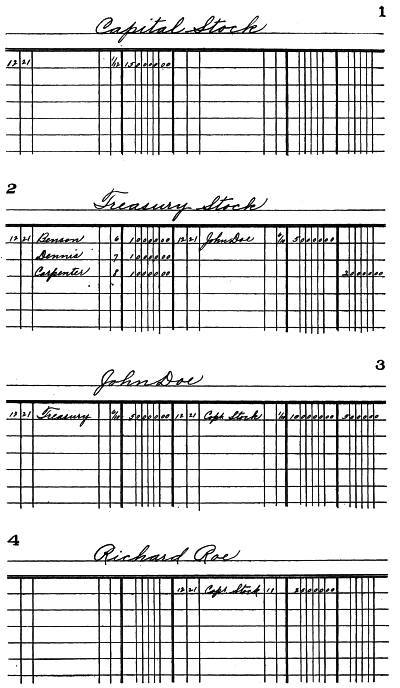 1
Capital Stock
12 21 1/12 15000000
2
Treasury Stock
12 21 Benson 6 1000000 12 21 John Doe 5000000
Dennis 7 1000000
Carpenter 8 1000000 2000000
3
John Doe
12 21 Treasury 5000000 12 21 Capt Stock 10000000 5000000
4
Richard Roe
12 21 Capt Stock 11 2000000